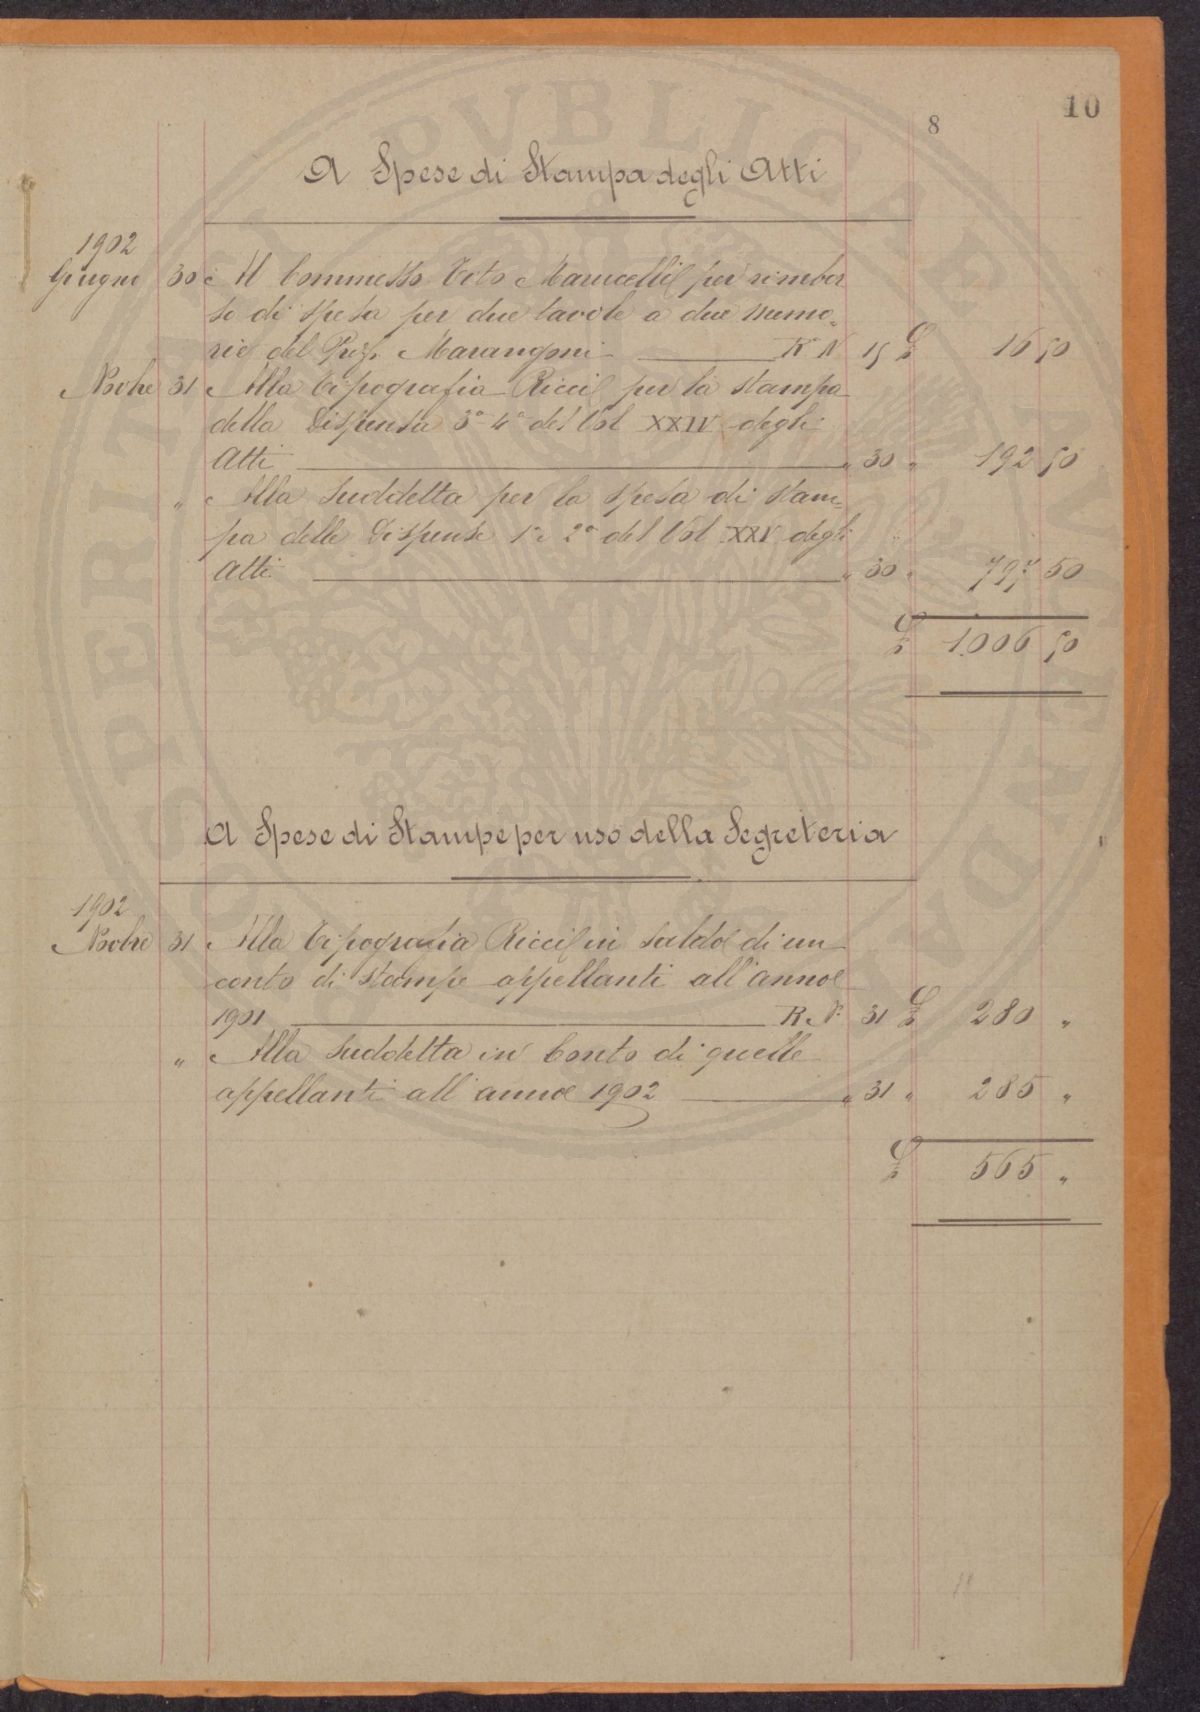 10
8
A Spese di Stampa degli Atti
1902
Giugno 30 Al Commesso Vito Marucelli per rimbor
so di spesa per due tavole a due memo-
rie del Prof. Marangoni R N 15 £ 16 50
Nbbre 31 Alla Tipografia Ricci per la stampa
della Dispensa 3ª 4ª del Vol XXIV degli
Atti " 30 " 192 50
" Alla Suddetta per la spesa di stam-
pa delle Dispense 1ª e 2ª del Vol XXV degli
Atti " 30 " 797 50
£ 1.006 50
A Spese di Stampe per uso della Segreteria
1902
Nbbre 31 Alla Tipografia Ricci in saldo di un
conto di stampe appellanti all'anno
1901 R N. 31 £ 280 "
" Alla Suddetta in Conto di quelle
appellanti all'anno 1902 " 31 " 285 "
£ 565 "